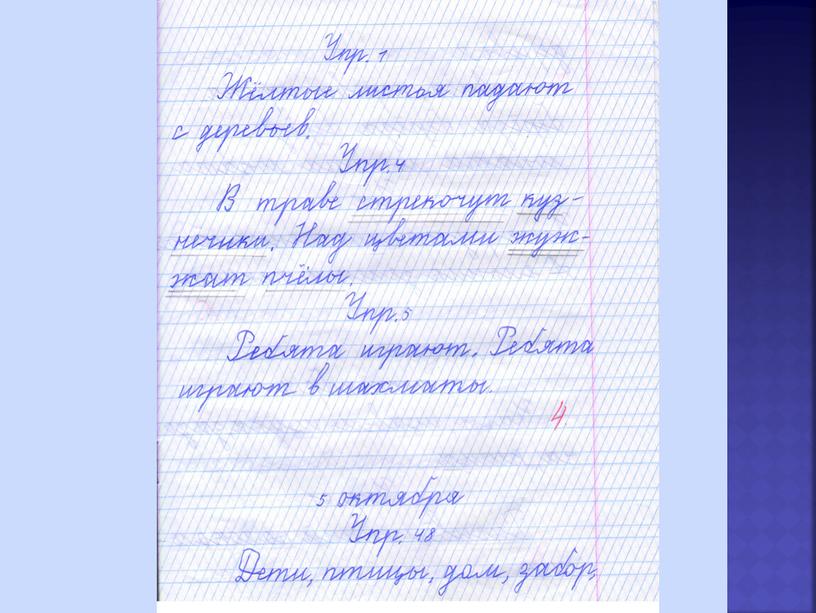 Упр. 1
Жёлтые листья падают
с деревьев.
Упр. 4
В траве стрекочут куз-
нечики. Над цветами жуж-
жат пчёлы.
Упр. 5
Ребята играют. Ребята
играют в шахматы.
4
5 октября
Упр. 48
Дети, птицы, дом, забор,